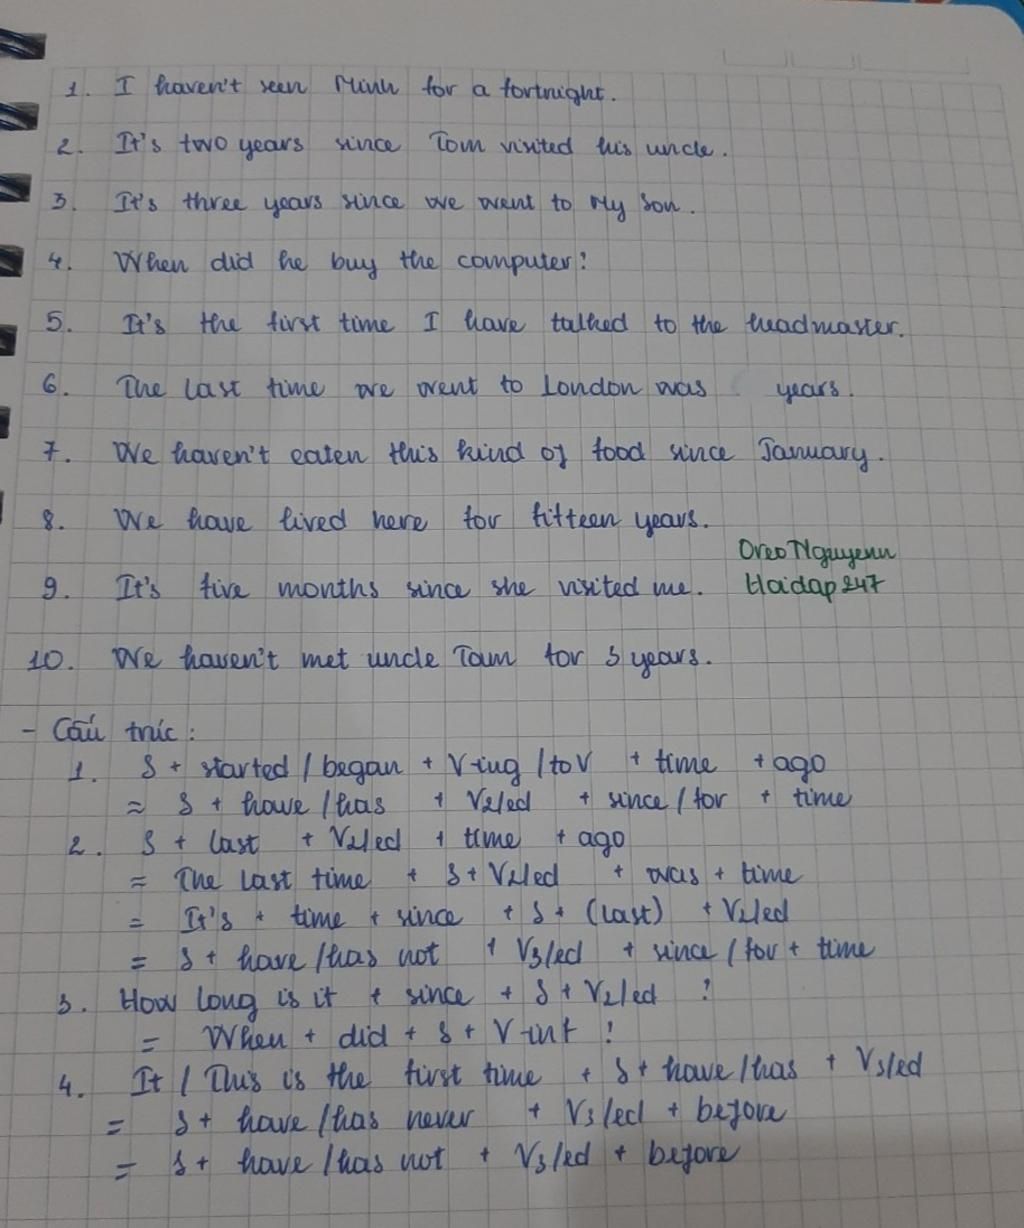 1. I haven't seen Minh for a fortnight.
2. It's two years since Tom visited his uncle.
3. It's three years since we went to My Son.
4. When did he buy the computer?
5. It's the first time I have talked to the headmaster.
6. The last time we went to London was years.
7. We haven't eaten this kind of food since January.
8. We have lived here for fifteen years.
OreoNguyenn
9. It's five months since she visited me. Hoidap247
10. We haven't met uncle Tam for 5 years.
- Cấu trúc:
1. S + started / began + V-ing / to V + time + ago
≈ S + have / has + V2/ed + since / for + time
2. S + last + V2/ed + time + ago
= The last time + S + V2/ed + was + time
= It's + time + since + S + (last) + V2/ed
= S + have / has not + V3/ed + since / for + time
3. How long is it + since + S + V2/ed ?
= When + did + S + V-inf ?
4. It / This is the first time + S + have / has + V3/ed
= S + have / has never + V3/ed + before
= S + have / has not + V3/ed + before